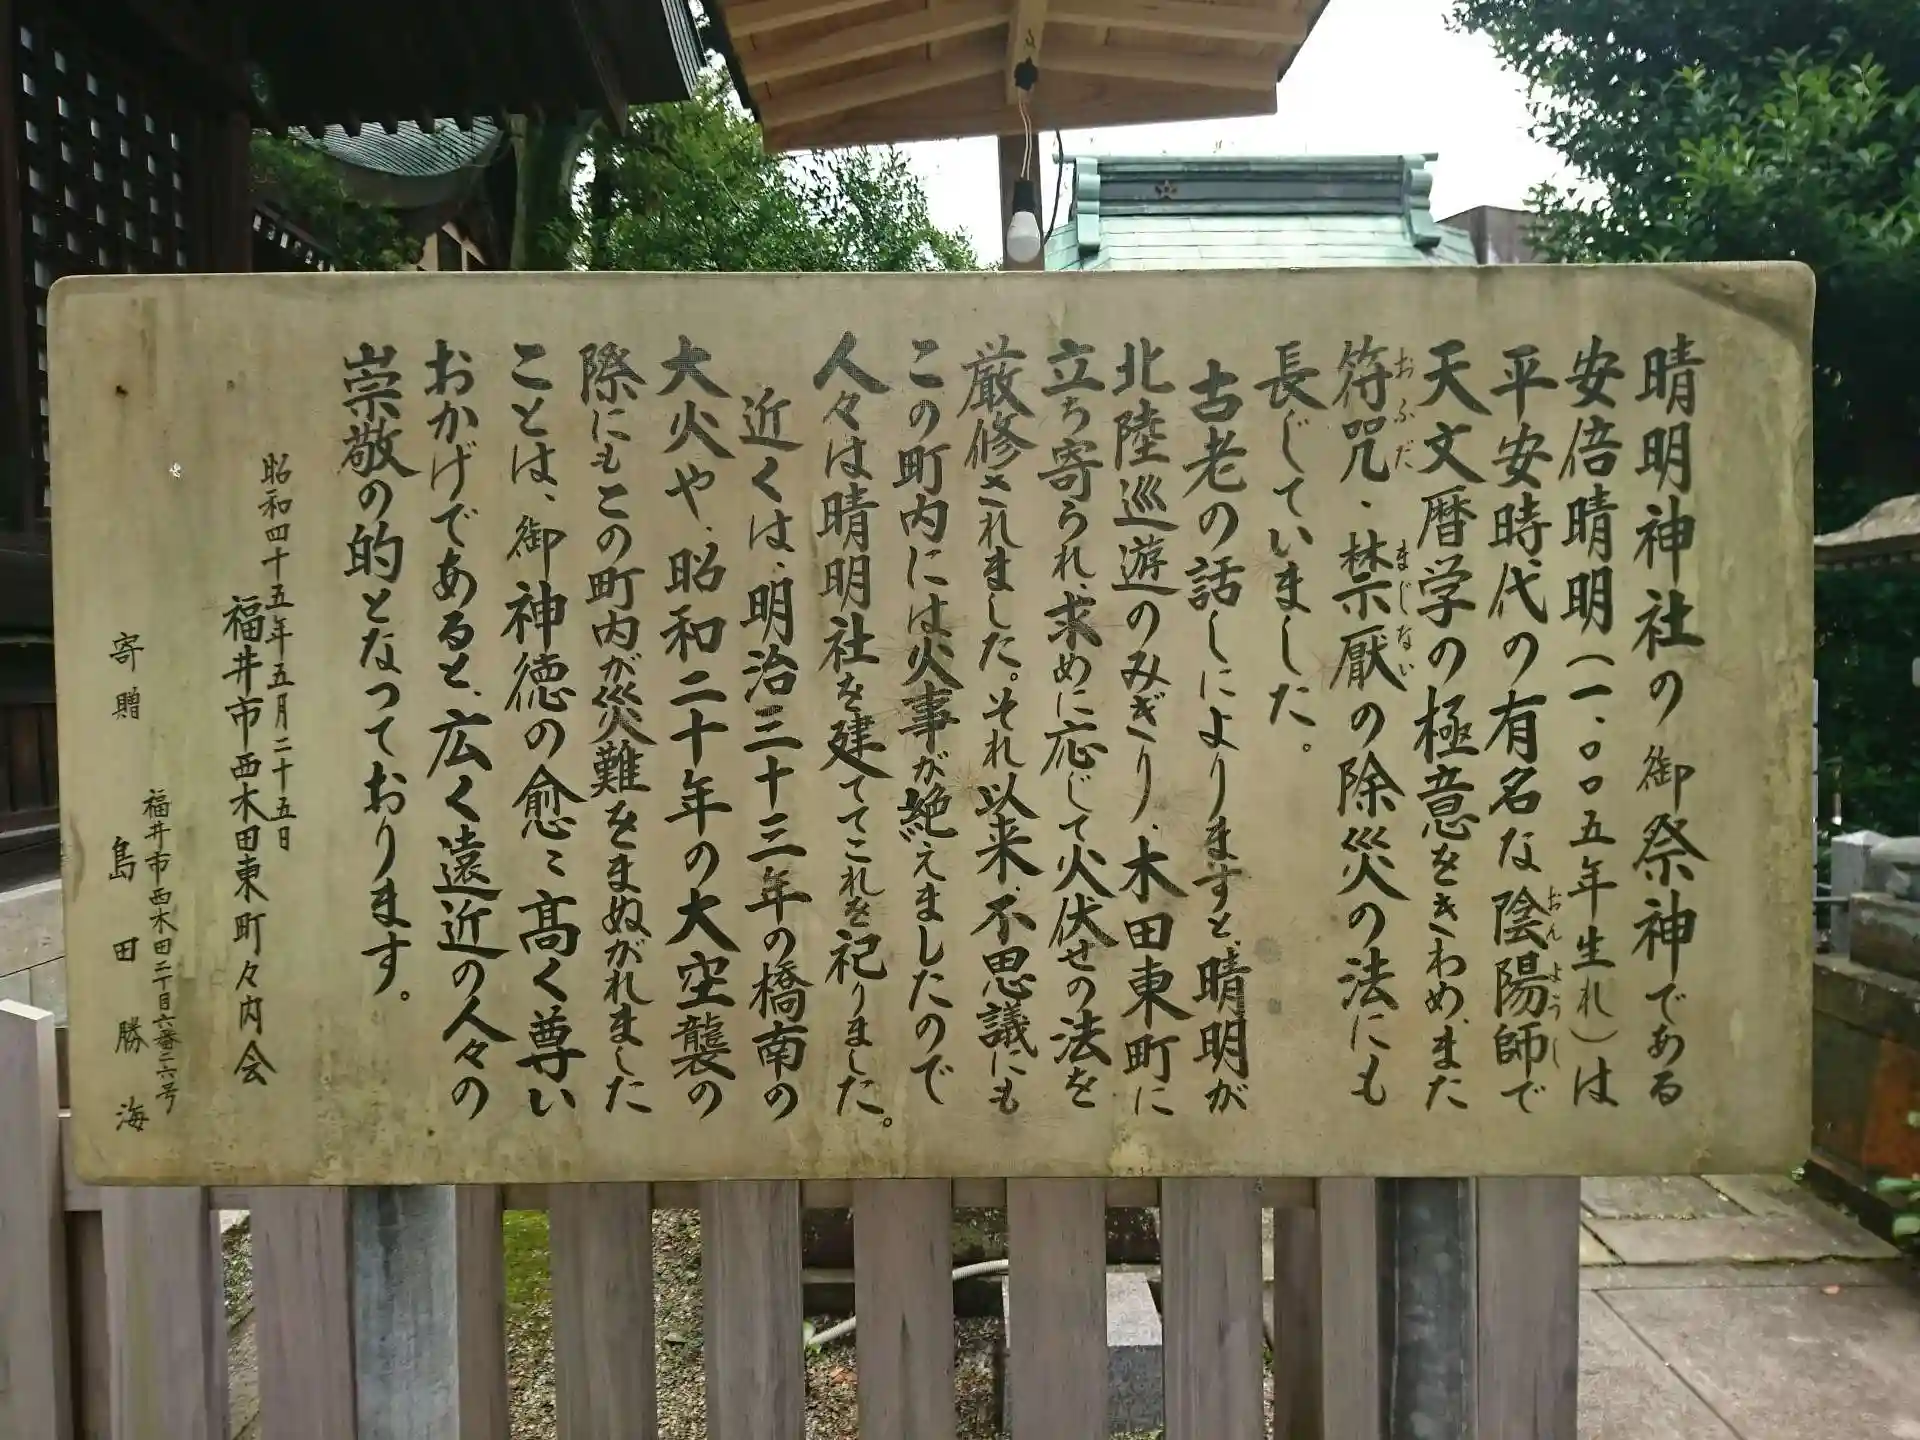 晴明神社の御祭神である
安倍晴明（一、〇〇五年生れ）は
平安時代の有名な陰陽師で
おんようし
天文暦学の極意をきわめ、また
符咒、禁厭の除災の法にも
おふだ
まじない
長じていました。
古老の話しによりますと、晴明が
北陸巡遊のみぎり、木田東町に
立ち寄られ、求めに応じて火伏せの法を
厳修されました。それ以来、不思議にも
この町内には火事が絶えましたので
人々は晴明社を建ててこれを祀りました。
近くは、明治三十三年の橋南の
大火や、昭和二十年の大空襲の
際にもこの町内が災難をまぬがれました
ことは、御神徳の愈々高く尊い
おかげであると、広く遠近の人々の
崇敬の的となつております。
昭和四十五年五月二十五日
福井市西木田東町々内会
福井市西木田二丁目六番二六号
寄贈 島田勝海